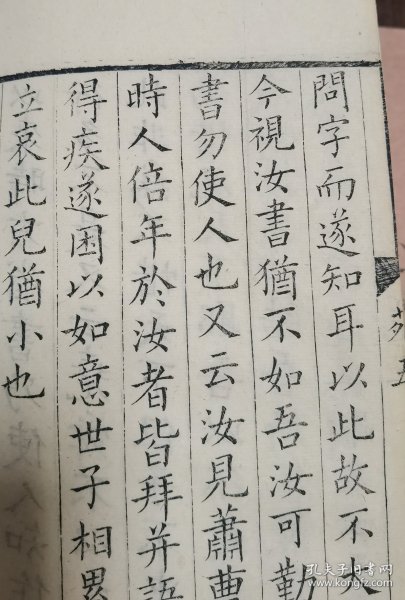 問字而遂知耳以此故不大
今視汝書猶不如吾汝可勤
書勿使人也又云汝見蕭曹
時人倍年於汝者皆拜并語
得疾遂困以如意世子相累
立哀此兒猶小也
苑五
孔夫子旧书网
www.kongfz.com